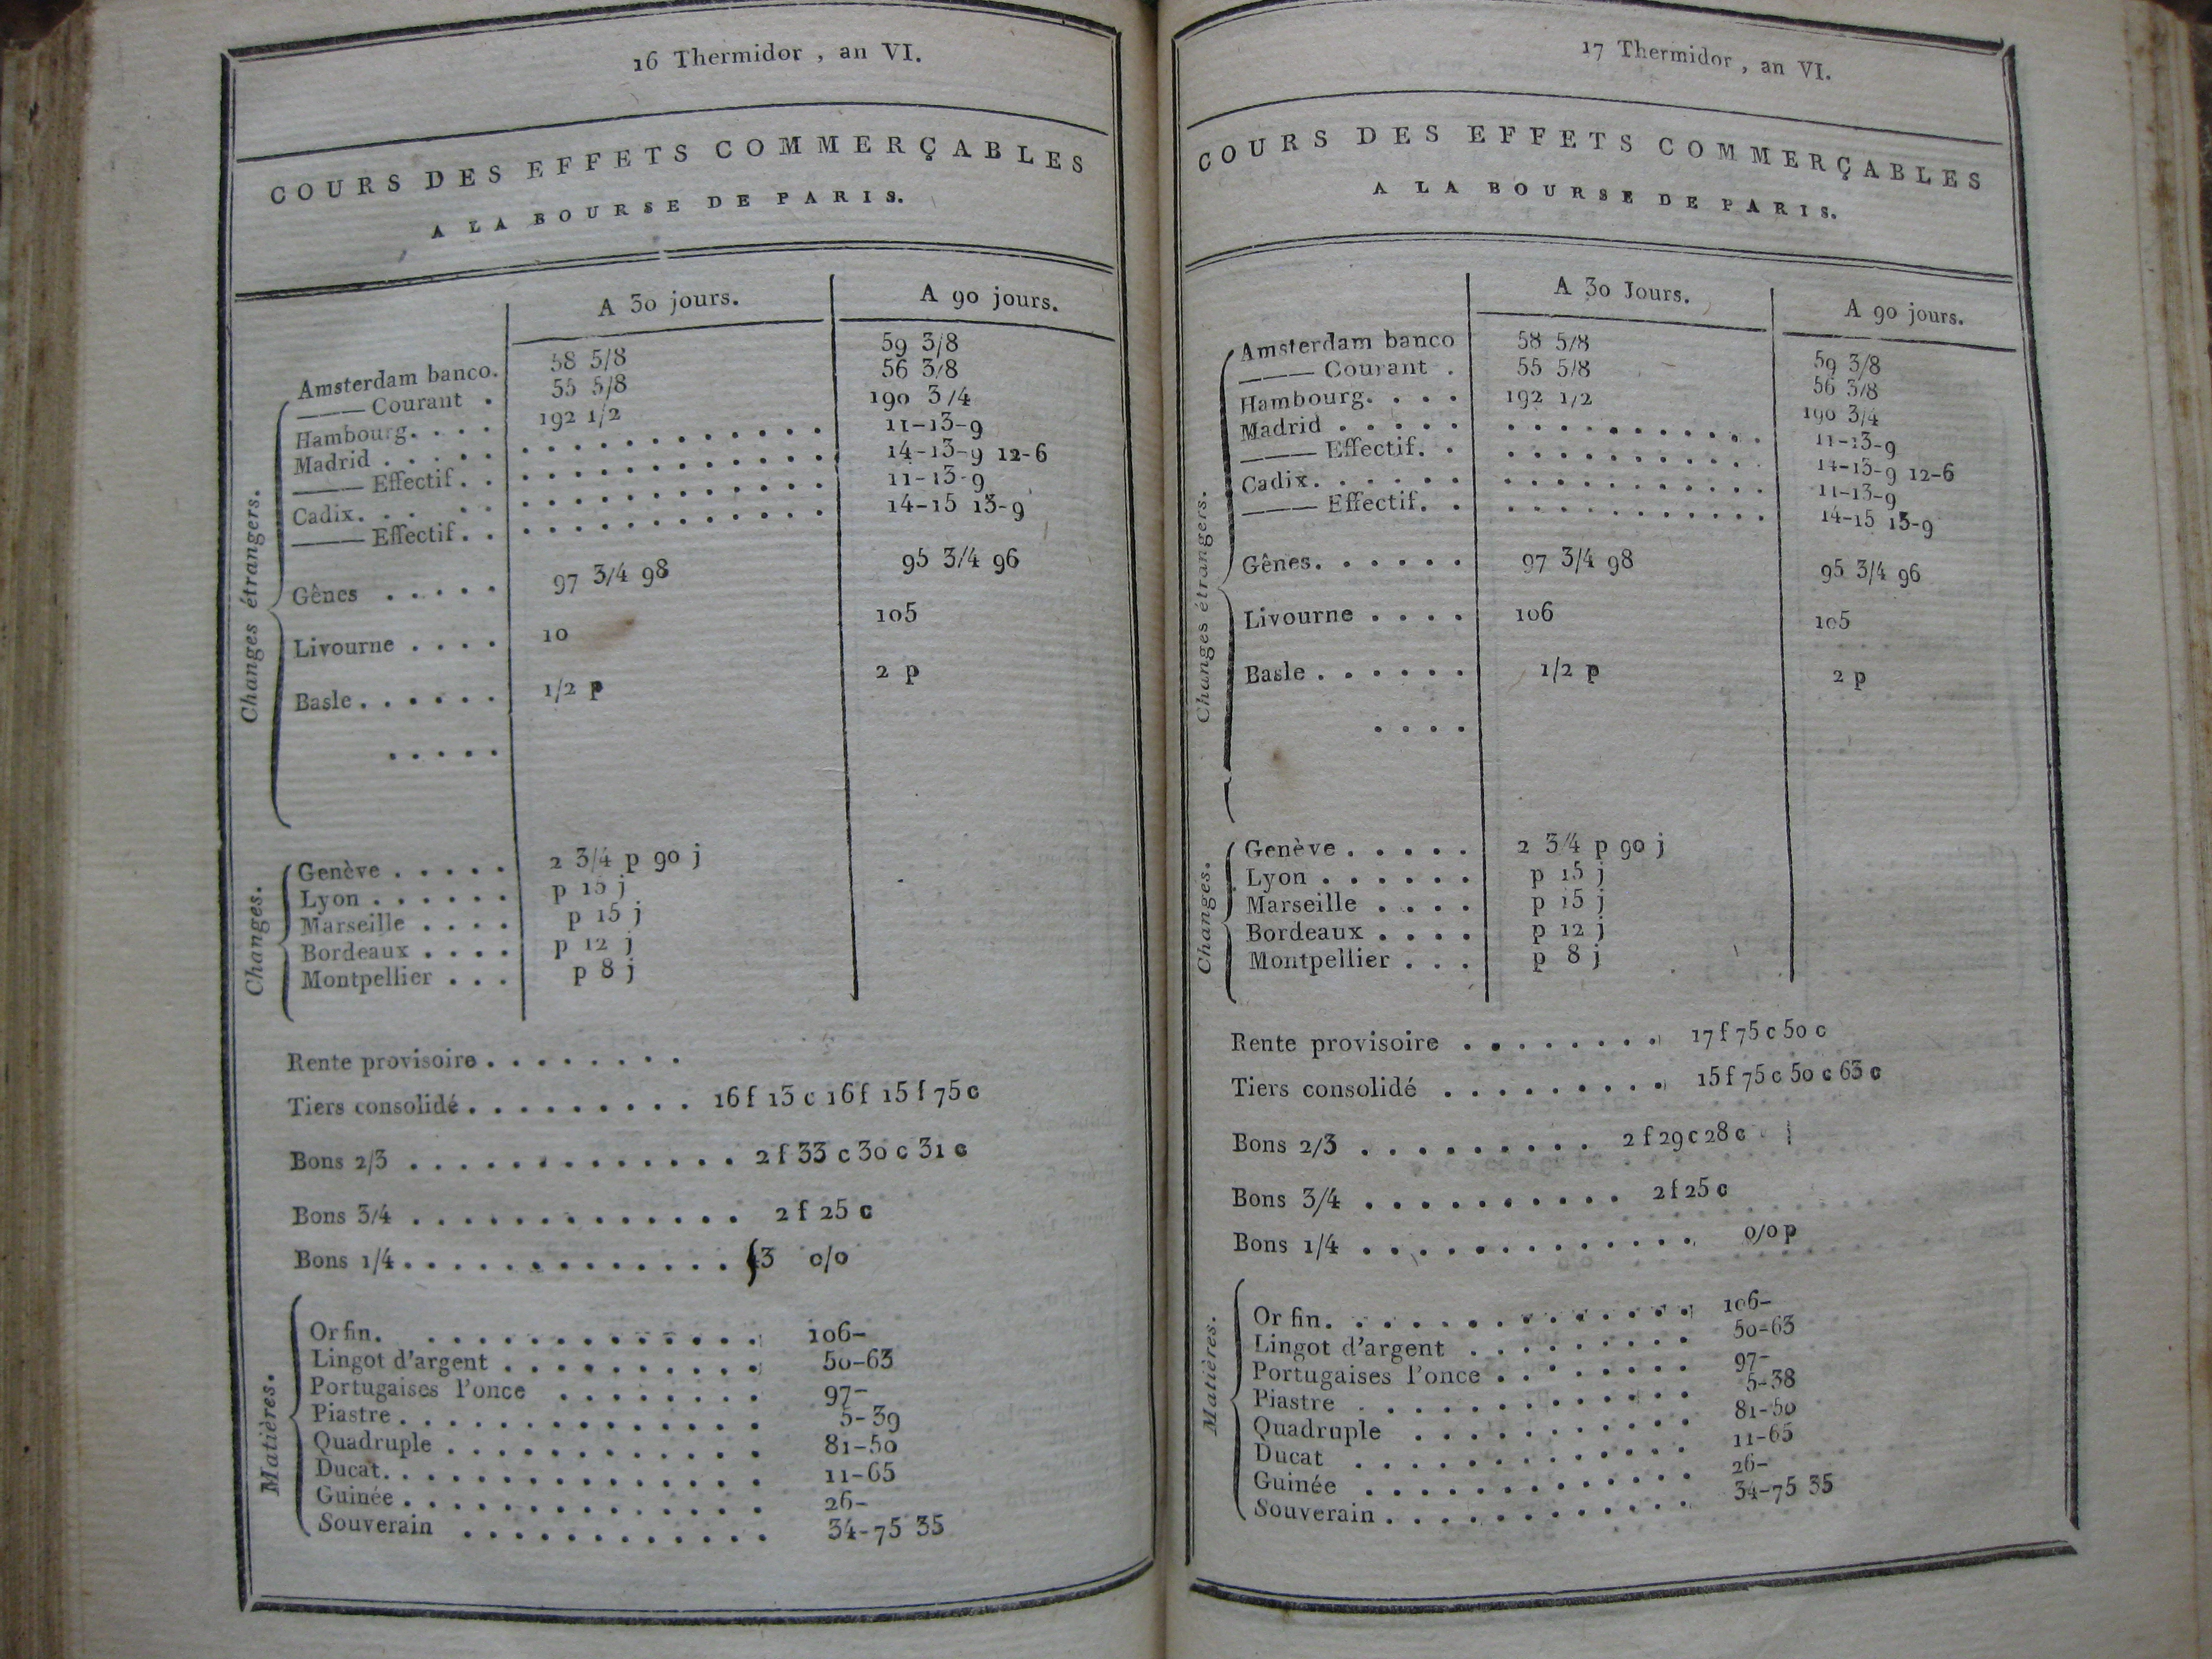 16 Thermidor , an VI.
COURS DES EFFETS COMMERÇABLES
A LA BOURSE DE PARIS.
A 30 jours. A 90 jours.
Changes étrangers.
Amsterdam banco. 58 5/8 59 3/8
——— Courant . 55 5/8 56 3/8
Hambourg. . . . 192 1/2 190 3/4
Madrid . . . . . . . . . . . . . . . . . 11-13-9
——— Effectif. . . . . . . . . . . . . . 14-13-9 12-6
Cadix. . . . . . . . . . . . . . . . . . 11-13-9
——— Effectif. . . . . . . . . . . . . . 14-15 13-9
Gênes . . . . . 97 3/4 98 95 3/4 96
Livourne . . . . 10 105
Basle . . . . . . 1/2 p 2 p
. . . . .
Changes.
Genève . . . . . 2 3/4 p 90 j
Lyon . . . . . . p 15 j
Marseille . . . . p 15 j
Bordeaux . . . . p 12 j
Montpellier . . . p 8 j
Rente provisoire . . . . . . . .
Tiers consolidé . . . . . . . . . . 16 f 13 c 16 f 15 f 75 c
Bons 2/3 . . . . . . . . . . . . . . 2 f 33 c 30 c 31 c
Bons 3/4 . . . . . . . . . . . . . . 2 f 25 c
Bons 1/4 . . . . . . . . . . . . . . 43 0/0
Matières.
Or fin. . . . . . . . . . . . . . . 106-
Lingot d'argent . . . . . . . . . . . 50-63
Portugaises l'once . . . . . . . . 97-
Piastre . . . . . . . . . . . . . . . 5-39
Quadruple . . . . . . . . . . . . . 81-50
Ducat. . . . . . . . . . . . . . . . 11-65
Guinée . . . . . . . . . . . . . . . 26-
Souverain . . . . . . . . . . . . 34-75 35
17 Thermidor , an VI.
COURS DES EFFETS COMMERÇABLES
A LA BOURSE DE PARIS.
A 30 Jours. A 90 jours.
Changes étrangers.
Amsterdam banco 58 5/8 59 3/8
——— Courant . 55 5/8 56 3/8
Hambourg. . . . 192 1/2 190 3/4
Madrid . . . . . . . . . . . . . . . . 11-13-9
——— Effectif. . . . . . . . . . . . . 14-13-9 12-6
Cadix. . . . . . . . . . . . . . . . . 11-13-9
——— Effectif. . . . . . . . . . . . . 14-15 13-9
Gênes. . . . . . 97 3/4 98 95 3/4 96
Livourne . . . . 106 105
Basle . . . . . . 1/2 p 2 p
. . . .
Changes.
Genève . . . . . 2 3/4 p 90 j
Lyon . . . . . . p 15 j
Marseille . . . . p 15 j
Bordeaux . . . . p 12 j
Montpellier . . . p 8 j
Rente provisoire . . . . . . . . 17 f 75 c 50 c
Tiers consolidé . . . . . . . . . 15 f 75 c 50 c 63 c
Bons 2/3 . . . . . . . . . . 2 f 29 c 28 c
Bons 3/4 . . . . . . . . . . . 2 f 25 c
Bons 1/4 . . . . . . . . . . . . . . 0/0 p
Matières.
Or fin. . . . . . . . . . . . . . 106-
Lingot d'argent . . . . . . . . . 50-63
Portugaises l'once . . . . . . . . 97-
Piastre . . . . . . . . . . . . . 5-38
Quadruple . . . . . . . . . . . 81-50
Ducat . . . . . . . . . . . . . 11-65
Guinée . . . . . . . . . . . . . 26-
Souverain . . . . . . . . . . . . 34-75 35